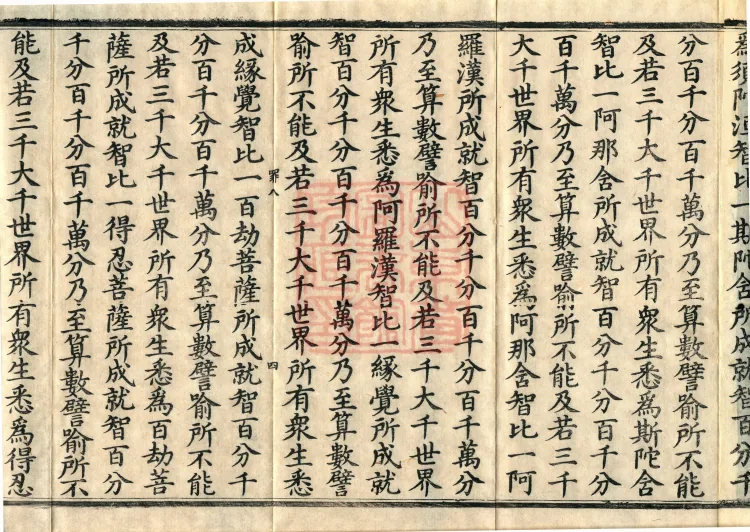 爲須陀洹智比一斯陀含所成就智百分千
分百千分百千萬分乃至算數譬喻所不能
及若三千大千世界所有衆生悉爲斯陀含
智比一阿那含所成就智百分千分百千分
百千萬分乃至算數譬喻所不能及若三千
大千世界所有衆生悉爲阿那含智比一阿
羅漢所成就智百分千分百千分百千萬分
乃至算數譬喻所不能及若三千大千世界
所有衆生悉爲阿羅漢智比一緣覺所成就
智百分千分百千分百千萬分乃至算數譬
喻所不能及若三千大千世界所有衆生悉
罪八 四
成緣覺智比一百劫菩薩所成就智百分千
分百千分百千萬分乃至算數譬喻所不能
及若三千大千世界所有衆生悉爲百劫菩
薩所成就智比一得忍菩薩所成就智百分
千分百千分百千萬分乃至算數譬喻所不
能及若三千大千世界所有衆生悉爲得忍